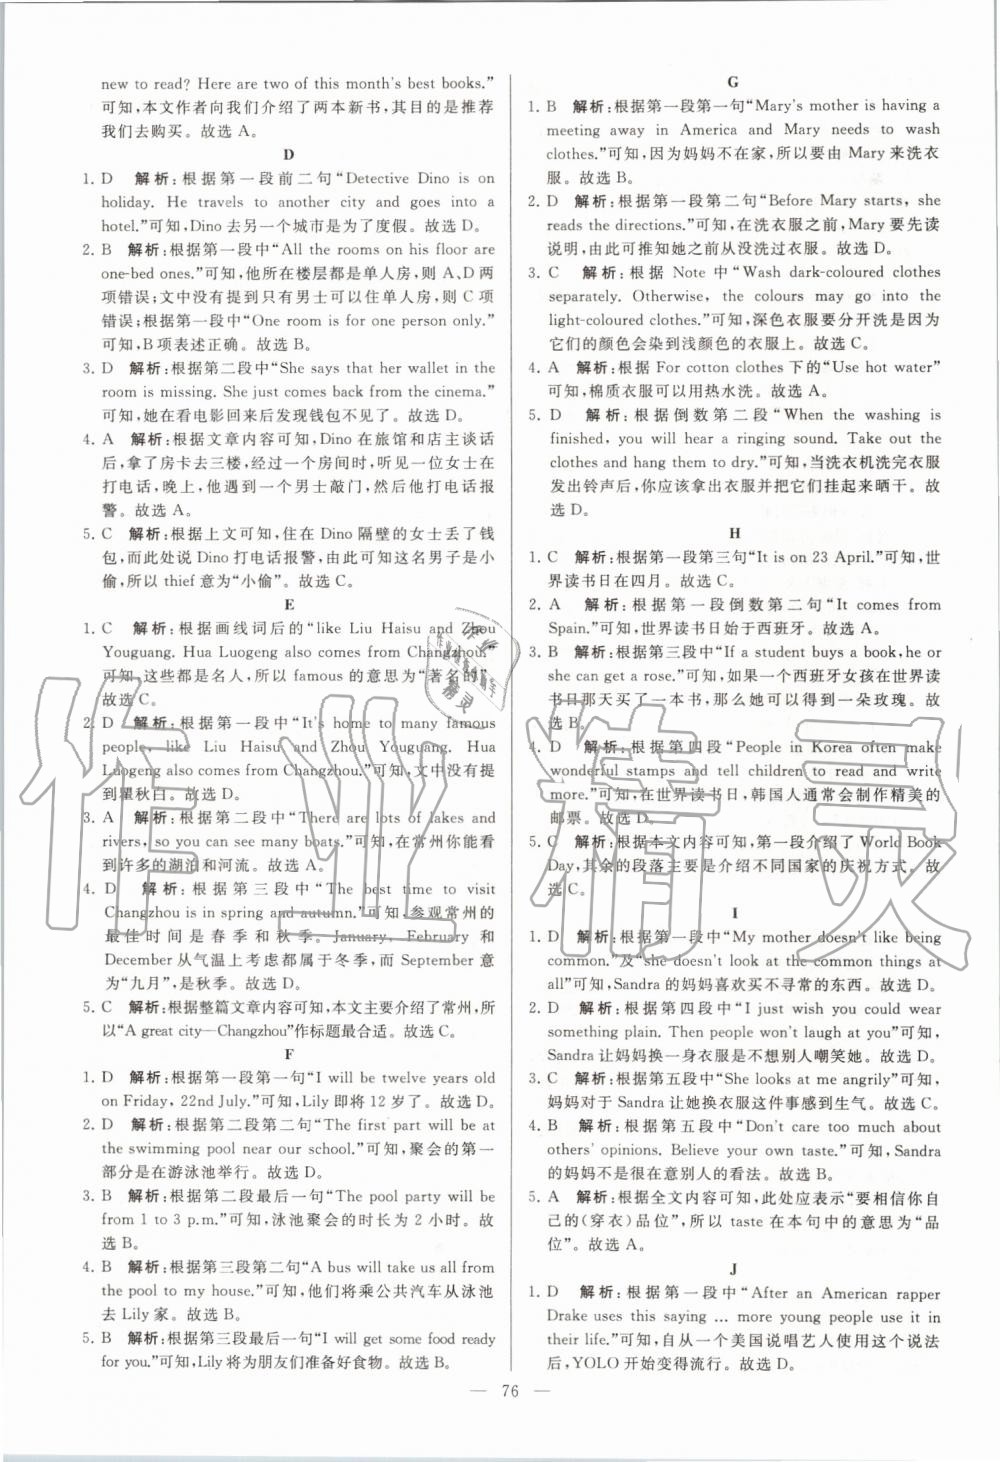 new to read? Here are two of this month's best books.”
可知,本文作者向我们介绍了两本新书,其目的是推荐
我们去购买。故选 A。
D
1. D 解析:根据第一段前二句“Detective Dino is on
holiday. He travels to another city and goes into a
hotel.”可知,Dino 去另一个城市是为了度假。故选 D。
2. B 解析:根据第一段中“All the rooms on his floor are
one-bed ones.”可知,他所在楼层都是单人房,则 A、D 两
项错误;文中没有提到只有男士可以住单人房,则 C 项
错误;根据第一段中“One room is for one person only.”
可知,B项表述正确。故选 B。
3. D 解析:根据第二段中“She says that her wallet in the
room is missing. She just comes back from the cinema.”
可知,她在看电影回来后发现钱包不见了。故选 D。
4. A 解析:根据文章内容可知,Dino 在旅馆和店主谈话
后,拿了房卡去三楼,经过一个房间时,听见一位女士在
打电话,晚上,他遇到一个男士敲门,然后他打电话报
警。故选 A。
5. C 解析:根据上文可知,住在 Dino 隔壁的女士丢了钱
包,而此处说 Dino 打电话报警,可知这名男子是小
偷,所以 thief 意为“小偷”。故选 C。
E
1. C 解析:根据画线词后的“like Liu Haisu and Zhou
Youguang. Hua Luogeng also comes from Changzhou.”
可知,这些都是名人,所以 famous 的意思为“著名的”。
故选 C。
2. D 解析:根据第一段中“It's home to many famous
people, like Liu Haisu and Zhou Youguang. Hua
Luogeng also comes from Changzhou.”可知,文中没有提
到瞿秋白。故选 D。
3. A 解析:根据第二段中“There are lots of lakes and
rivers, so you can see many boats.”可知,在常州你能看
到许多的湖泊和河流。故选 A。
4. D 解析:根据第三段中“The best time to visit
Changzhou is in spring and autumn.”可知,参观常州的
最佳时间是春季和秋季。January、February 和
December 从气温上考虑都属于冬季,而 September 意
为“九月”,是秋季。故选 D。
5. C 解析:根据整篇文章内容可知,本文主要介绍了常州,所
以“A great city—Changzhou”作标题最合适。故选 C。
F
1. D 解析:根据第一段第一句“I will be twelve years old
on Friday, 22nd July.”可知,Lily 即将 12 岁了。故选 D。
2. D 解析:根据第二段第二句“The first part will be at
the swimming pool near our school.”可知,聚会的第一
部分是在游泳池举行。故选 D。
3. B 解析:根据第二段最后一句“The pool party will be
from 1 to 3 p.m.”可知,泳池聚会的时长为 2 小时。故
选 B。
4. B 解析:根据第三段第二句“A bus will take us all from
the pool to my house.”可知,他们将乘公共汽车从泳池
去 Lily家。故选 B。
5. B 解析:根据第三段最后一句“I will get some food ready
for you.”可知,Lily将为朋友们准备好食物。故选 B。
G
1. B 解析:根据第一段第一句“Mary's mother is having a
meeting away in America and Mary needs to wash
clothes.”可知,因为妈妈不在家,所以要由 Mary 来洗衣
服。故选 B。
2. D 解析:根据第一段第二句“Before Mary starts, she
reads the directions.”可知,在洗衣服之前,Mary 要先读
说明,由此可推知她之前从没洗过衣服。故选 D。
3. C 解析:根据 Note 中“Wash dark-coloured clothes
separately. Otherwise, the colours may go into the
light-coloured clothes.”可知,深色衣服要分开洗是因为
它们的颜色会染到浅颜色的衣服上。故选 C。
4. A 解析:根据 For cotton clothes 下的“Use hot water”
可知,棉质衣服可以用热水洗。故选 A。
5. D 解析:根据倒数第二段“When the washing is
finished, you will hear a ringing sound. Take out the
clothes and hang them to dry.”可知,当洗衣机洗完衣服
发出铃声后,你应该拿出衣服并把它们挂起来晒干。故
选 D。
H
1. C 解析:根据第一段第三句“It is on 23 April.”可知,世
界读书日在四月。故选 C。
2. A 解析:根据第一段倒数第二句“It comes from
Spain.”可知,世界读书日始于西班牙。故选 A。
3. B 解析:根据第三段中“If a student buys a book, he or
she can get a rose.”可知,如果一个西班牙女孩在世界读
书日那天买了一本书,那么她可以得到一朵玫瑰。故
选 B。
4. D 解析:根据第四段“People in Korea often make
wonderful stamps and tell children to read and write
more.”可知,在世界读书日,韩国人通常会制作精美的
邮票。故选 D。
5. C 解析:根据本文内容可知,第一段介绍了 World Book
Day,其余的段落主要介绍不同国家的庆祝方式。故
选 C。
I
1. D 解析:根据第一段中“My mother doesn't like being
common.”及“she doesn't look at the common things at
all”可知,Sandra 的妈妈喜欢买不寻常的东西。故选 D。
2. D 解析:根据第四段中“I just wish you could wear
something plain. Then people won't laugh at you”可知,
Sandra 让妈妈换一身衣服是不想别人嘲笑她。故选 D。
3. C 解析:根据第五段中“She looks at me angrily”可知,
妈妈对于 Sandra 让她换衣服这件事感到生气。故选 C。
4. B 解析:根据第五段中“Don't care too much about
others' opinions. Believe your own taste.”可知,Sandra
的妈妈不是很在意别人的看法。故选 B。
5. A 解析:根据全文内容可知,此处应表示“要相信你自
己的(穿衣)品位”,所以 taste 在本句中的意思为“品
位”。故选 A。
J
1. D 解析:根据第一段中“After an American rapper
Drake uses this saying ... more young people use it in
their life.”可知,自从一个美国说唱艺人使用这个说法
后,YOLO 开始变得流行。故选 D。
— 76 —
作业精灵